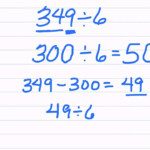 349÷6
300÷6=50
349-300=49
49÷6